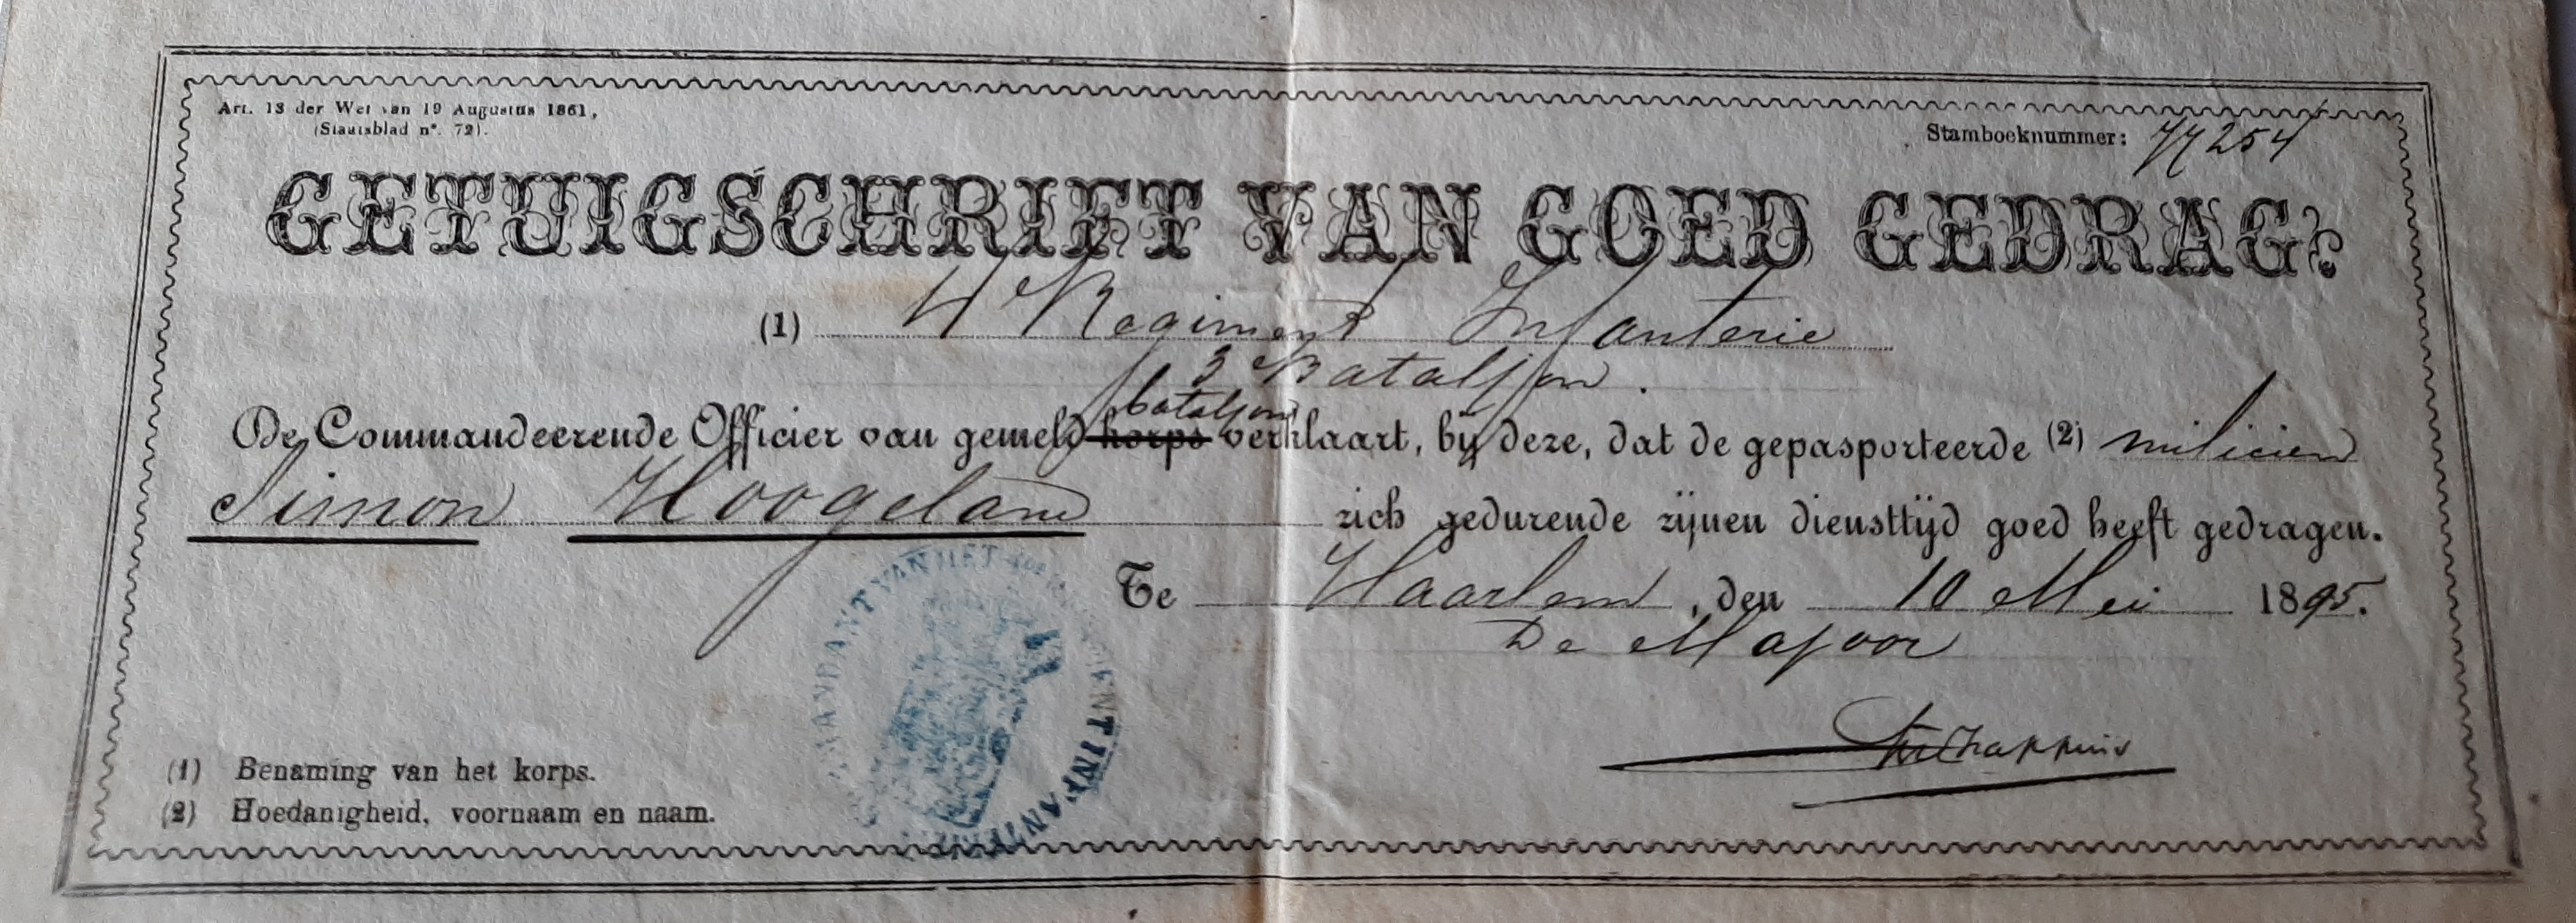 Art. 13 der Wet van 19 Augustus 1861,
(Staatsblad n°. 72).
Stamboeknummer: 77254
GETUIGSCHRIFT VAN GOED GEDRAG.
(1) 4e Regiment Infanterie
3e Bataljon.
bataljon
De Commandeerende Officier van gemeld korps verklaart, bij deze, dat de gepasporteerde (2) milicien
Simon Hoogeland zich gedurende zijnen diensttijd goed heeft gedragen.
Te Haarlem, den 10 Mei 1895.
De Majoor
Chappuis
COMMANDANT VAN HET 4de REGIMENT INFANTERIE
(1) Benaming van het korps.
(2) Hoedanigheid, voornaam en naam.